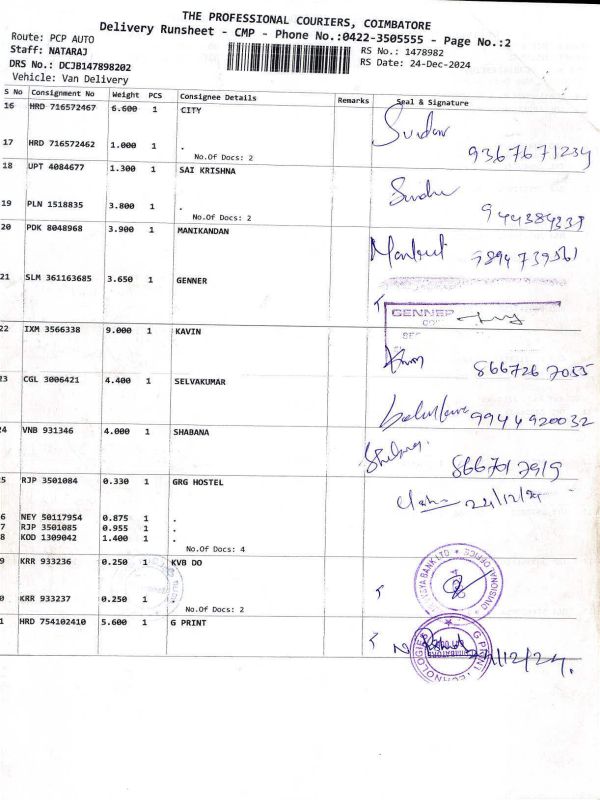 THE PROFESSIONAL COURIERS, COIMBATORE
Delivery Runsheet - CMP - Phone No.:0422-3505555 - Page No.:2
Route: PCP AUTO
Staff: NATARAJ RS No.: 1478982
DRS No.: DCJB147898202 RS Date: 24-Dec-2024
Vehicle: Van Delivery
S No Consignment No Weight PCS Consignee Details Remarks Seal & Signature
16 HRD 716572467 6.600 1 CITY
17 HRD 716572462 1.000 1 . 9367671234
No.Of Docs: 2
18 UPT 4084677 1.300 1 SAI KRISHNA
19 PLN 1518835 3.800 1 .
No.Of Docs: 2
20 PDK 8048968 3.900 1 MANIKANDAN
21 SLM 361163685 3.650 1 GENNER
GENNEP
22 IXM 3566338 9.000 1 KAVIN
8667267055
23 CGL 3006421 4.400 1 SELVAKUMAR
9944920032
24 VNB 931346 4.000 1 SHABANA
8667017919
5 RJP 3501084 0.330 1 GRG HOSTEL
24/12/24
6 NEY 50117954 0.875 1 .
7 RJP 3501085 0.955 1 .
8 KOD 1309042 1.400 1 .
No.Of Docs: 4
9 KRR 933236 0.250 1 KVB DO
VYSYA BANK LTD * DIVISIONAL OFFICE
0 KRR 933237 0.250 1 .
No.Of Docs: 2
1 HRD 754102410 5.600 1 G PRINT
G PRINT TECHNOLOGIES
/12/24.